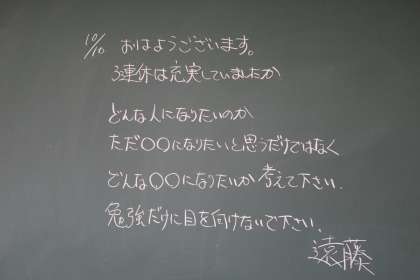 10/10 おはようございます。
3連休は充実していましたか
どんな人になりたいのか
ただ○○になりたいと思うだけではなく
どんな○○になりたいか考えて下さい.
勉強だけに目を向けないで下さい.
遠藤